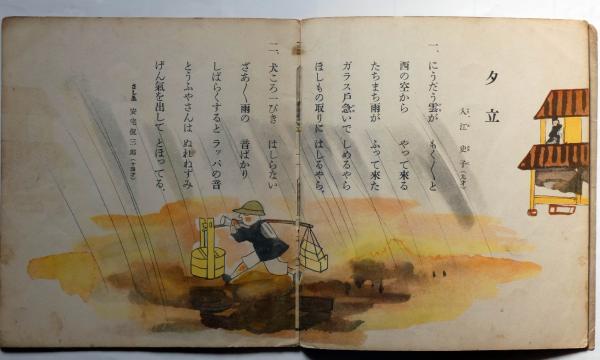 夕立
入江史子（九才）
一、にうだう雲が もくくと
西の空から やって來る
たちまち雨が ふって來た
ガラス戸急いで しめるやら
ほしもの取りに はしるやら。
二、犬ころ一ぴき はしらない
ざあ〱雨の 音ばかり
しばらくすると ラッパの音
とうふやさんは ぬれねずみ
げん氣を出して とほってる。
さしゑ 安宅 三郎（十四才）